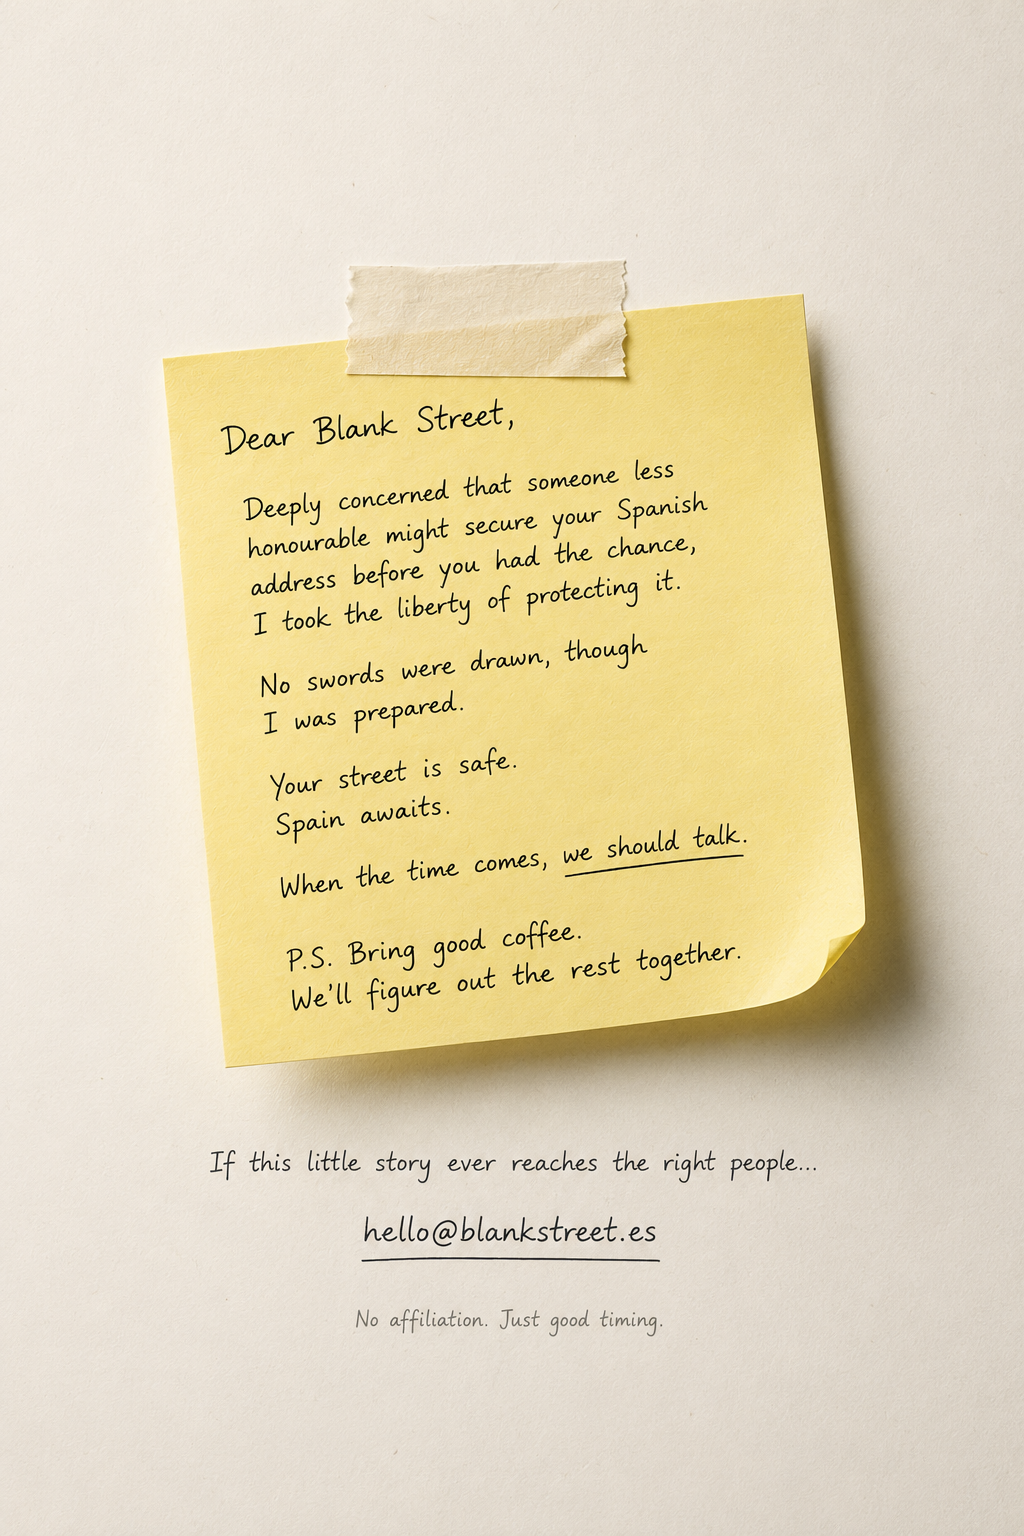 Dear Blank Street,
Deeply concerned that someone less
honourable might secure your Spanish
address before you had the chance,
I took the liberty of protecting it.
No swords were drawn, though
I was prepared.
Your street is safe.
Spain awaits.
When the time comes, we should talk.
P.S. Bring good coffee.
We'll figure out the rest together.
If this little story ever reaches the right people...
hello@blankstreet.es
No affiliation. Just good timing.